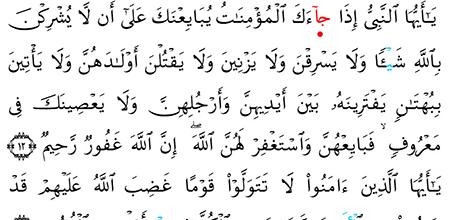 يَـٰٓأَيُّهَا ٱلنَّبِىُّ إِذَا جَآءَكَ ٱلْمُؤْمِنَـٰتُ يُبَايِعْنَكَ عَلَىٰٓ أَن لَّا يُشْرِكْنَ
بِٱللَّهِ شَيْـًٔا وَلَا يَسْرِقْنَ وَلَا يَزْنِينَ وَلَا يَقْتُلْنَ أَوْلَـٰدَهُنَّ وَلَا يَأْتِينَ
بِبُهْتَـٰنٍ يَفْتَرِينَهُۥ بَيْنَ أَيْدِيهِنَّ وَأَرْجُلِهِنَّ وَلَا يَعْصِينَكَ فِى
مَعْرُوفٍ ۙ فَبَايِعْهُنَّ وَٱسْتَغْفِرْ لَهُنَّ ٱللَّهَ ۖ إِنَّ ٱللَّهَ غَفُورٌ رَّحِيمٌ ﴿١٢﴾
يَـٰٓأَيُّهَا ٱلَّذِينَ ءَامَنُوا۟ لَا تَتَوَلَّوْا۟ قَوْمًا غَضِبَ ٱللَّهُ عَلَيْهِمْ قَدْ